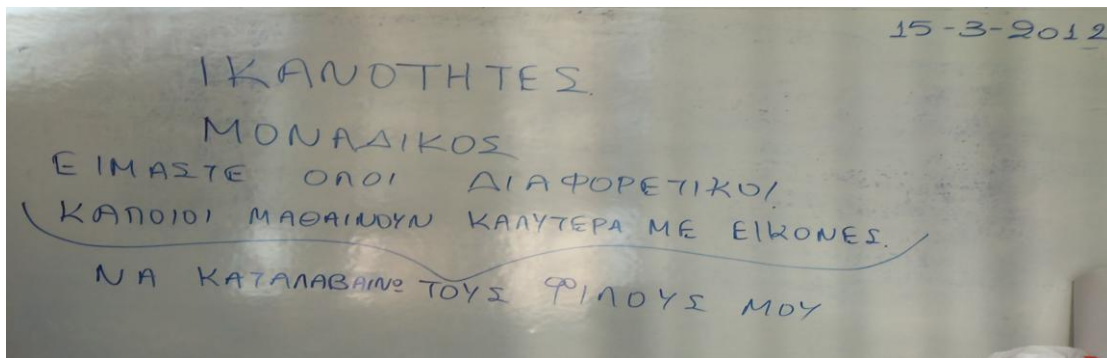 15-3-2012
ΙΚΑΝΟΤΗΤΕΣ.
ΜΟΝΑΔΙΚΟΣ
ΕΙΜΑΣΤΕ ΟΛΟΙ ΔΙΑΦΟΡΕΤΙΚΟΙ
ΚΑΠΟΙΟΙ ΜΑΘΑΙΝΟΥΝ ΚΑΛΥΤΕΡΑ ΜΕ ΕΙΚΟΝΕΣ.
ΝΑ ΚΑΤΑΛΑΒΑΙΝΩ ΤΟΥΣ ΦΙΛΟΥΣ ΜΟΥ